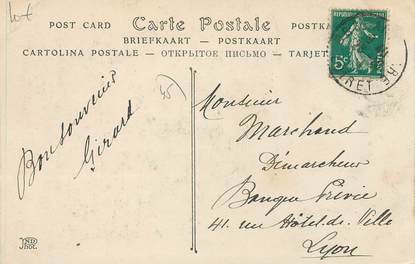 lot
POST CARD Carte Postale POSTKA
BRIEFKAART — POSTKAART
CARTOLINA POSTALE — ОТКРЫТОЕ ПИСЬМО — TARJET
Bon souvenir
Girard
REPUBLIQUE FRANÇAISE
5c
Monsieur
Marchand
Démarcheur
Banque Privée
41 rue Hôtel-de-Ville
Lyon
ND
Phot.